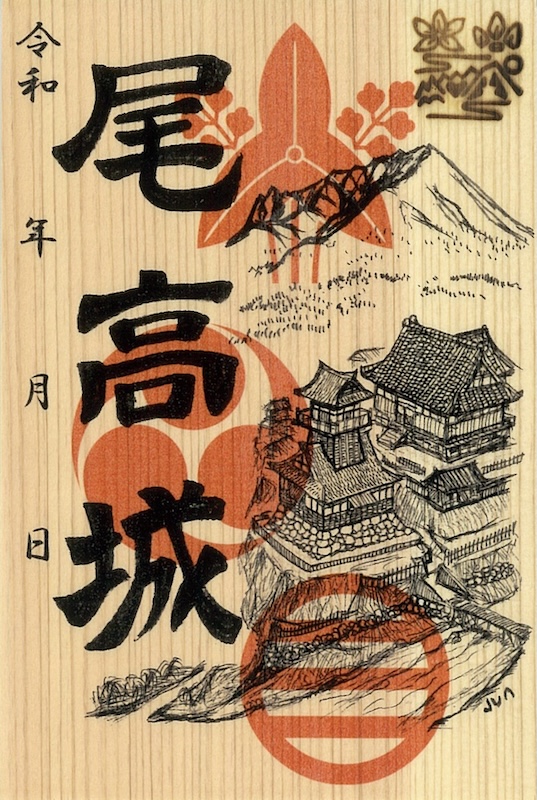 尾高城
令和 年 月 日
Jun